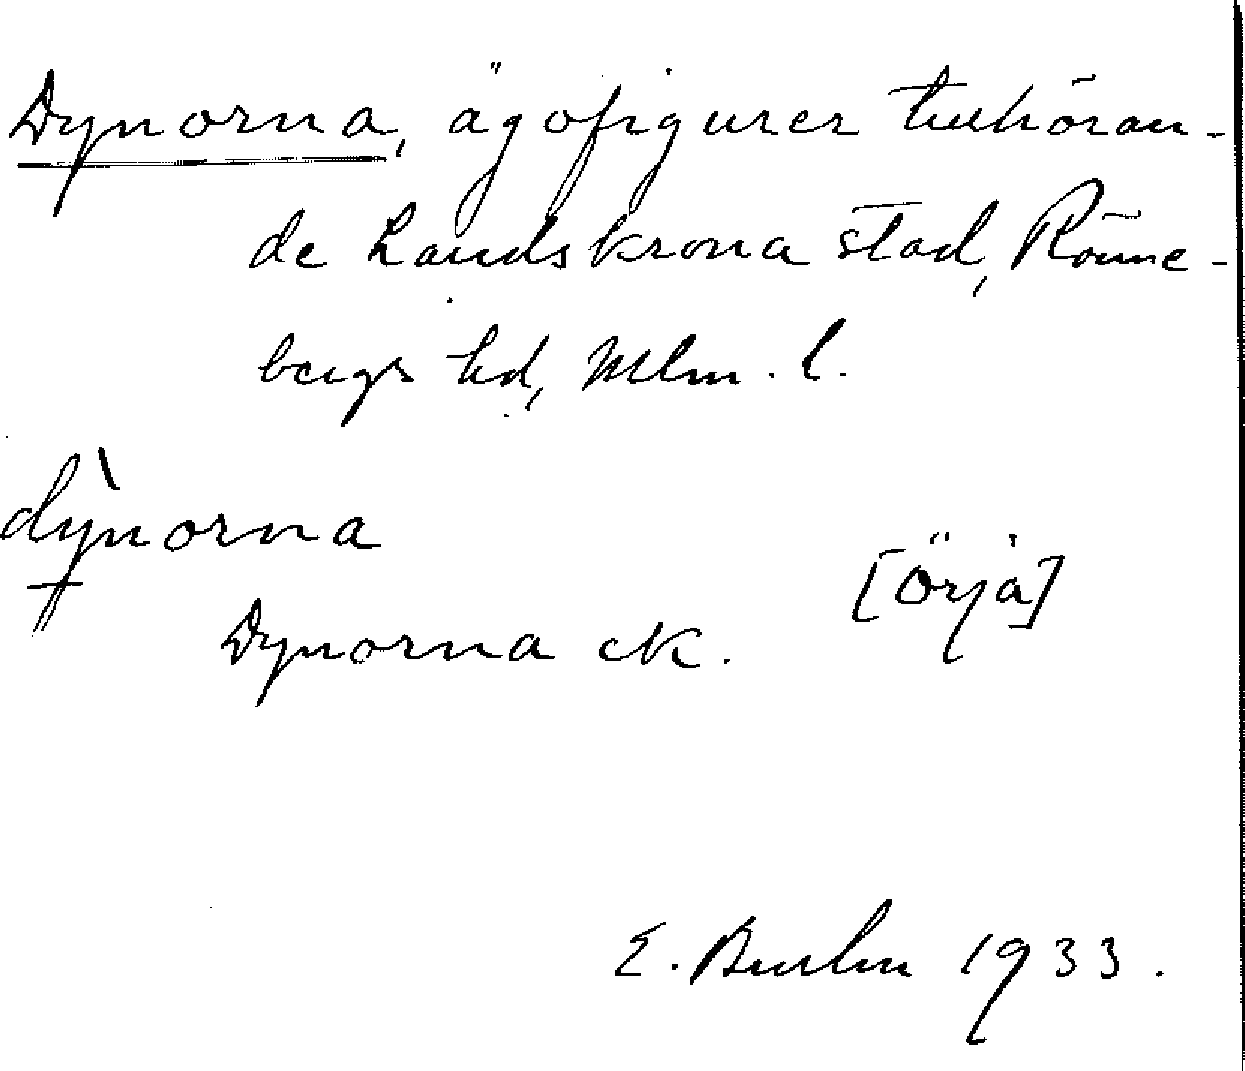 Dynorna, ägofigurer tillhöran-
de Landskrona stad, Rönne-
bergs hd, Mlm. l.
dỳnorna
[Örja]
Dynorna ek.
E. 1933.